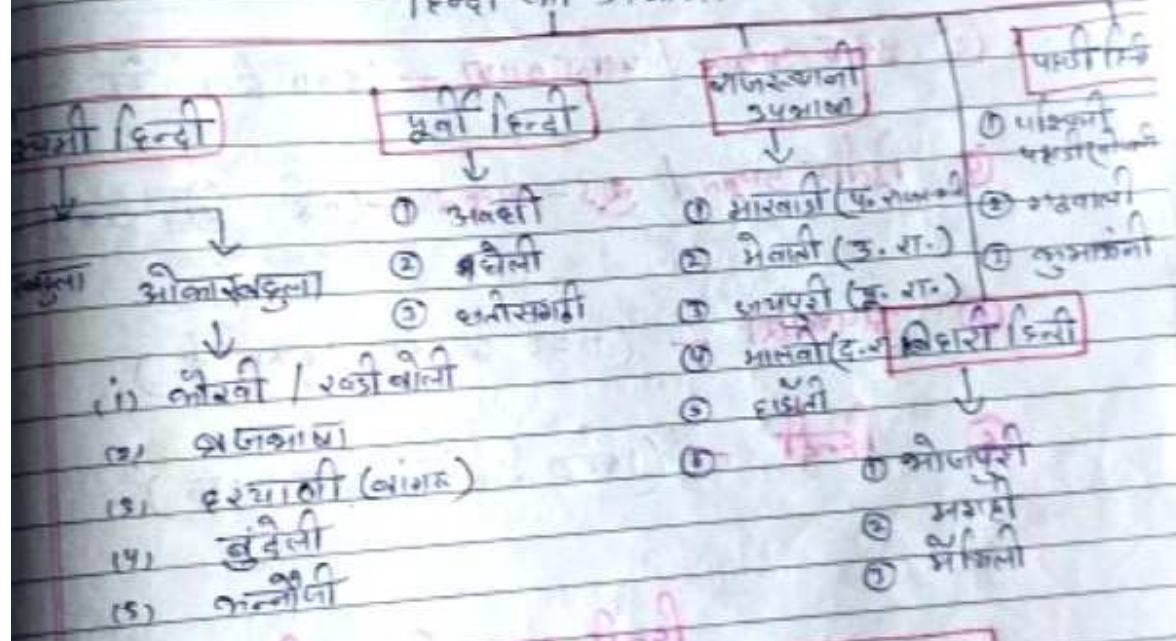 हिन्दी की
श्चिमी हिन्दी
ओकारबहुला
(1) कौरवी / खड़ी बोली
(2) ब्रजभाषा
(3) हरयाणी (बांगरू)
(4) बुंदेली
(5) कन्नौजी
पूर्वी हिन्दी
① अवधी
② बघेली
③ छत्तीसगढ़ी
राजस्थानी
उपभाषा
① मारवाड़ी (प.
② मेवाती (उ. रा.)
③ जयपुरी (पू. रा.)
④ मालवी (द. रा
⑤ हाड़ौती
⑥
पहाड़ी हिन्दी
① पश्चिमी
② गढ़वाली
③ कुमाऊंनी
बिहारी हिन्दी
① भोजपुरी
② मगही
③ मैथिली